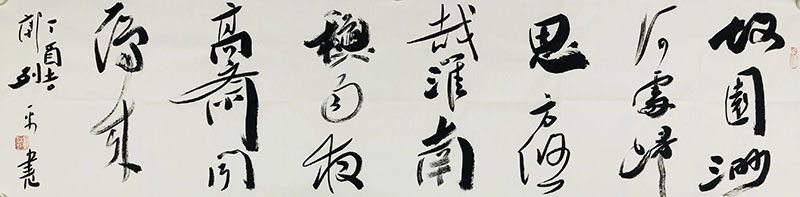 故園渺
何處歸
思方悠
哉淮南
秋雨夜
高齋聞
鴈來
丁酉
郭列平書